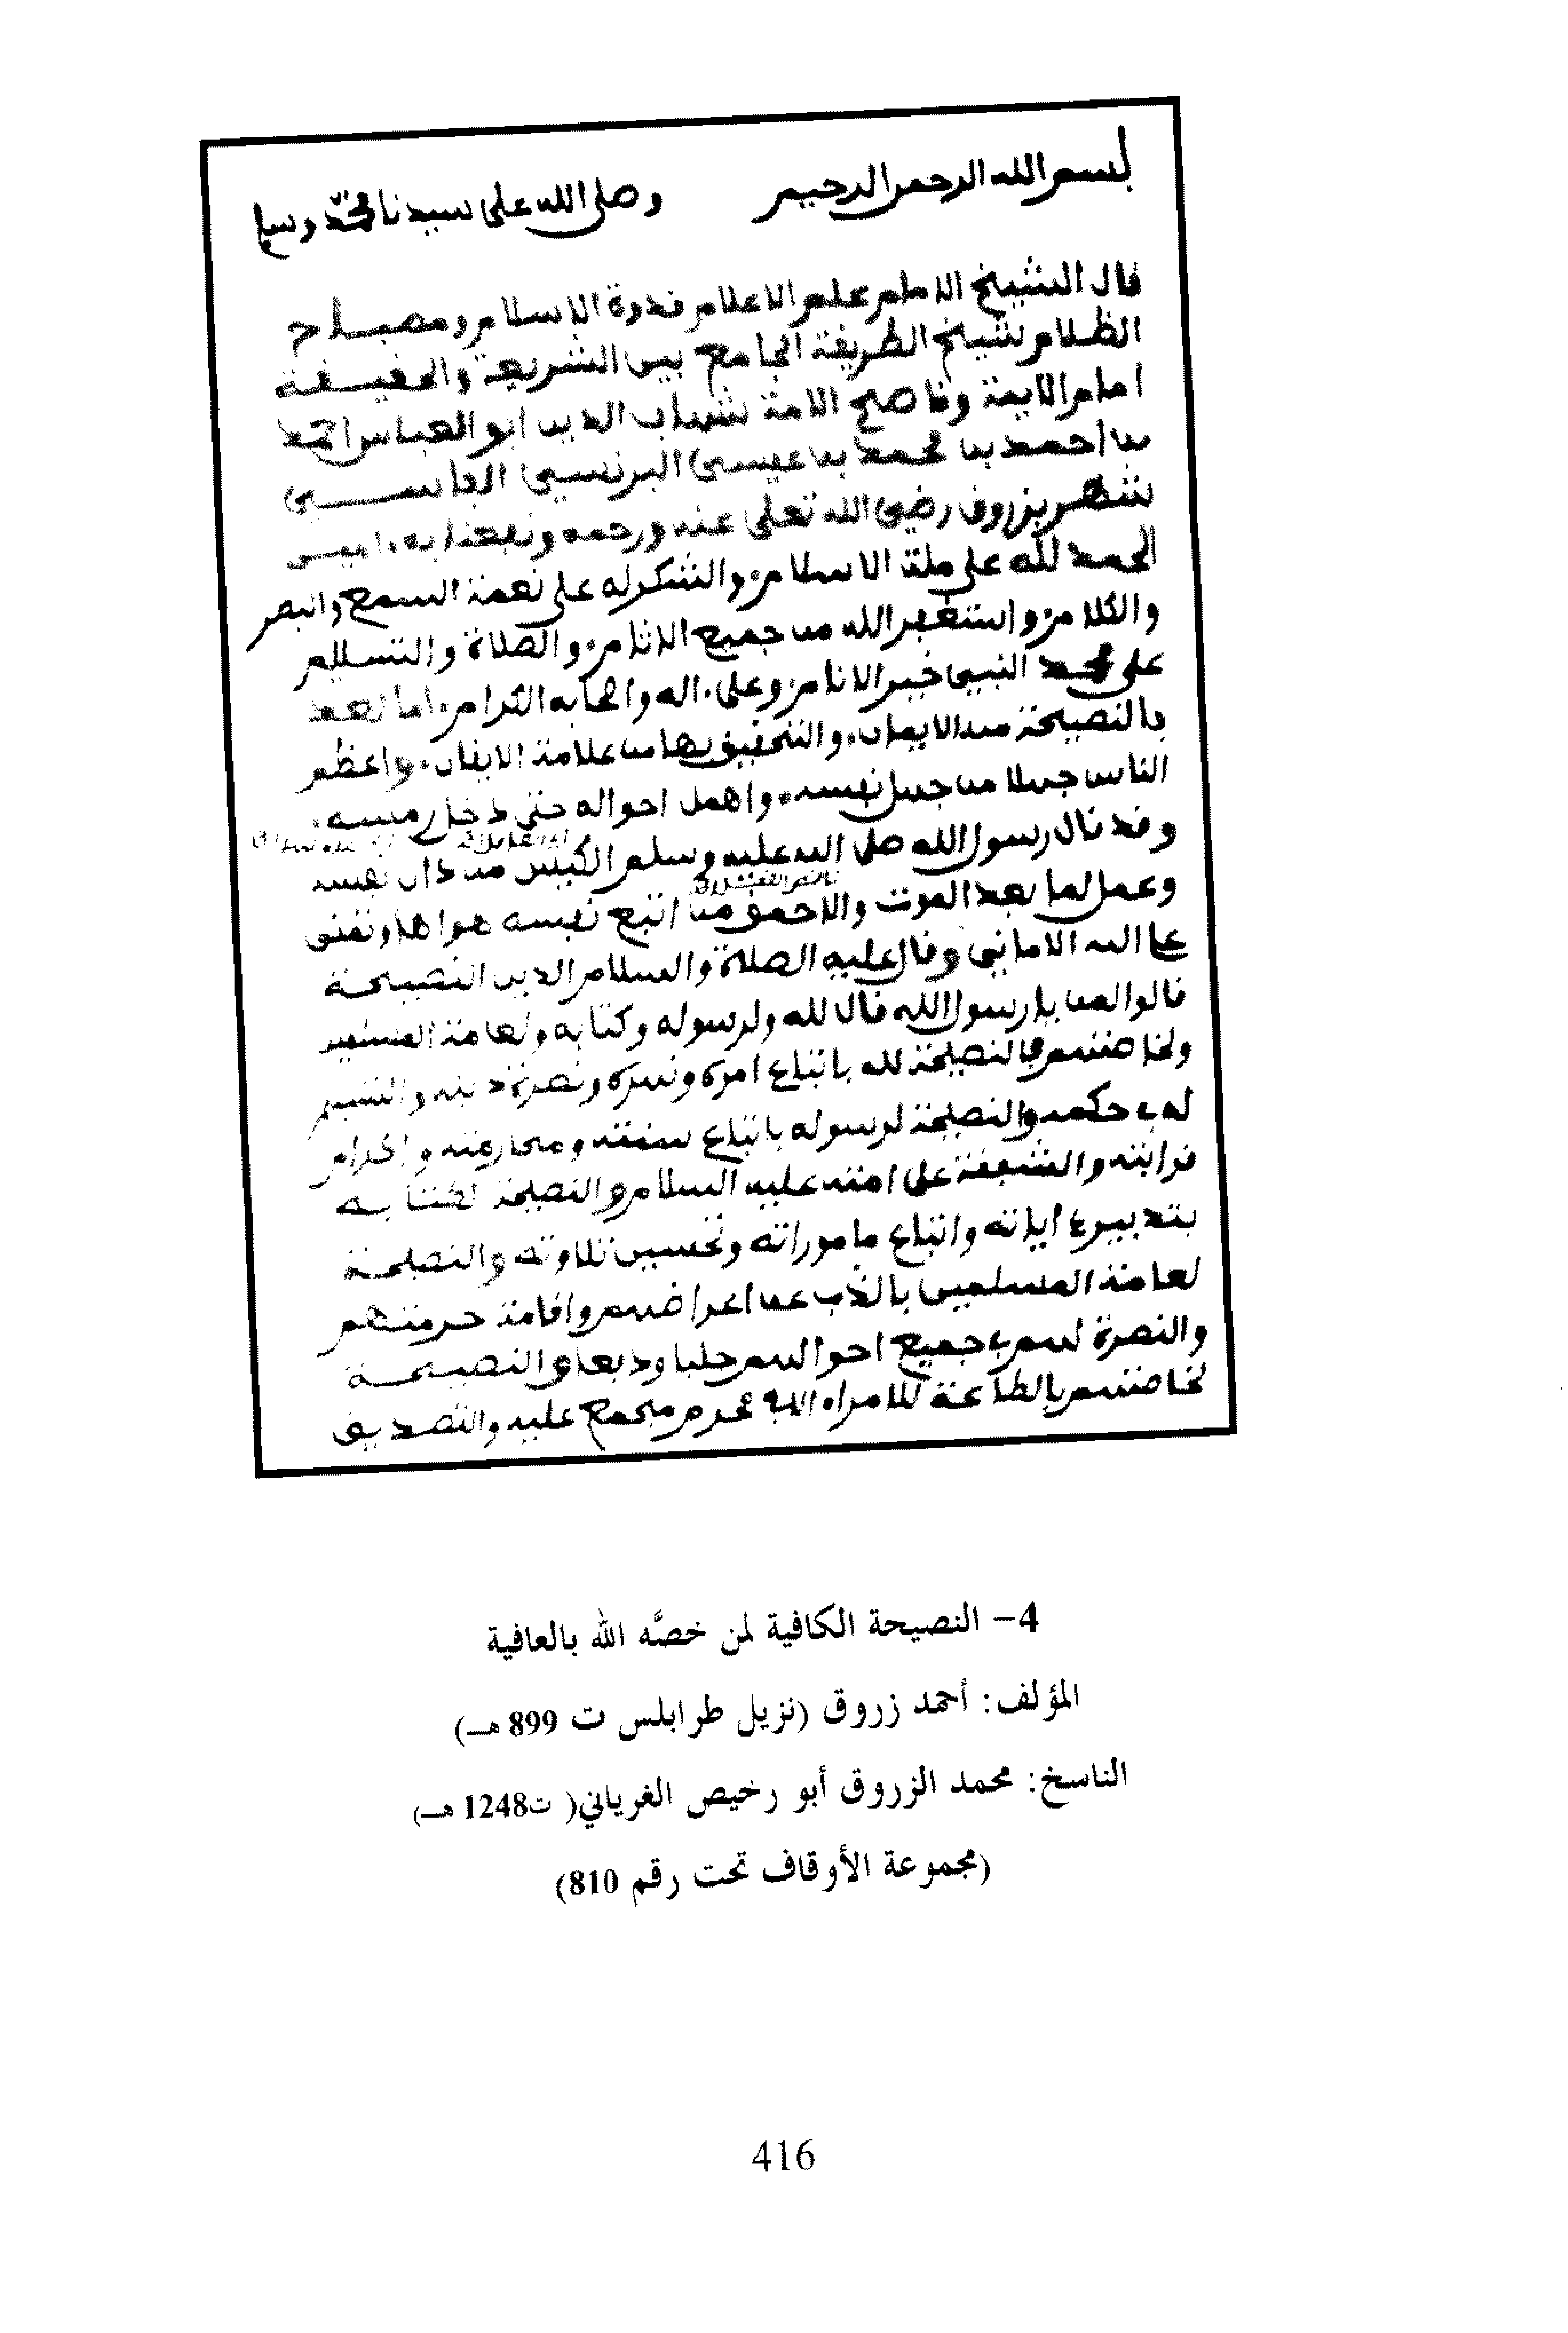 بسم الله الرحمن الرحيم وصلى الله على سيدنا محمد وسلم
قال الشيخ الامام علم الاعلام قدوة الاسلام ومصباح
الظلام شيخ الطريقة الجامع بين الشريعة والحقيقة
امام الايمة وناصح الامة شهاب الدين ابو العباس احمد
بن احمد بن محمد بن عيسى البرنسي الفاسي
شهر بزروق رضي الله تعلى عنه ورحمه ونفعنا به امين
الحمد لله على ملة الاسلام والشكر له على نعمة السمع والبصر
والكلام واستغفر الله من جميع الاثام والصلاة والتسليم
على محمد النبي خير الانام وعلى اله واصحابه الكرام اما بعد
فالنصيحة من الايمان والتحقيق بها من علامة الايقان واعظم
الناس جهلا من جهل نفسه واهمل احواله حتى دخل رمسه
وقد قال رسول الله صلى الله عليه وسلم الكيس من دان نفسه
وعمل لما بعد الموت والاحمق من اتبع نفسه هواها وتمنى
على الله الاماني وقال عليه الصلاة والسلام الدين النصيحة
قالوا لمن يا رسول الله قال لله ولرسوله وكتابه ولعامة المسلمين
ولخاصتهم فالنصيحة لله باتباع امره ونصرة دينه والتسليم
له في حكمه والنصيحة لرسوله باتباع سنته واكرام
قرابته والشفقة على امته عليه السلام والنصيحة لكتابه
بتدبير اياته واتباع ماموراته وتحسين تلاوته والنصيحة
لعامة المسلمين بالذب عن اعراضهم واقامة حرمتهم
والنصرة لهم في جميع احوالهم جلبا ودفعا والنصيحة
لخاصتهم بالطاعة للامراء الا في محرم مجمع عليه والتصديق
4- النصيحة الكافية لمن خصَّه الله بالعافية
المؤلف: أحمد زروق (نزيل طرابلس ت 899 هـ)
الناسخ: محمد الزروق أبو رخيص الغرياني( ت1248 هـ)
(مجموعة الأوقاف تحت رقم 810)
416